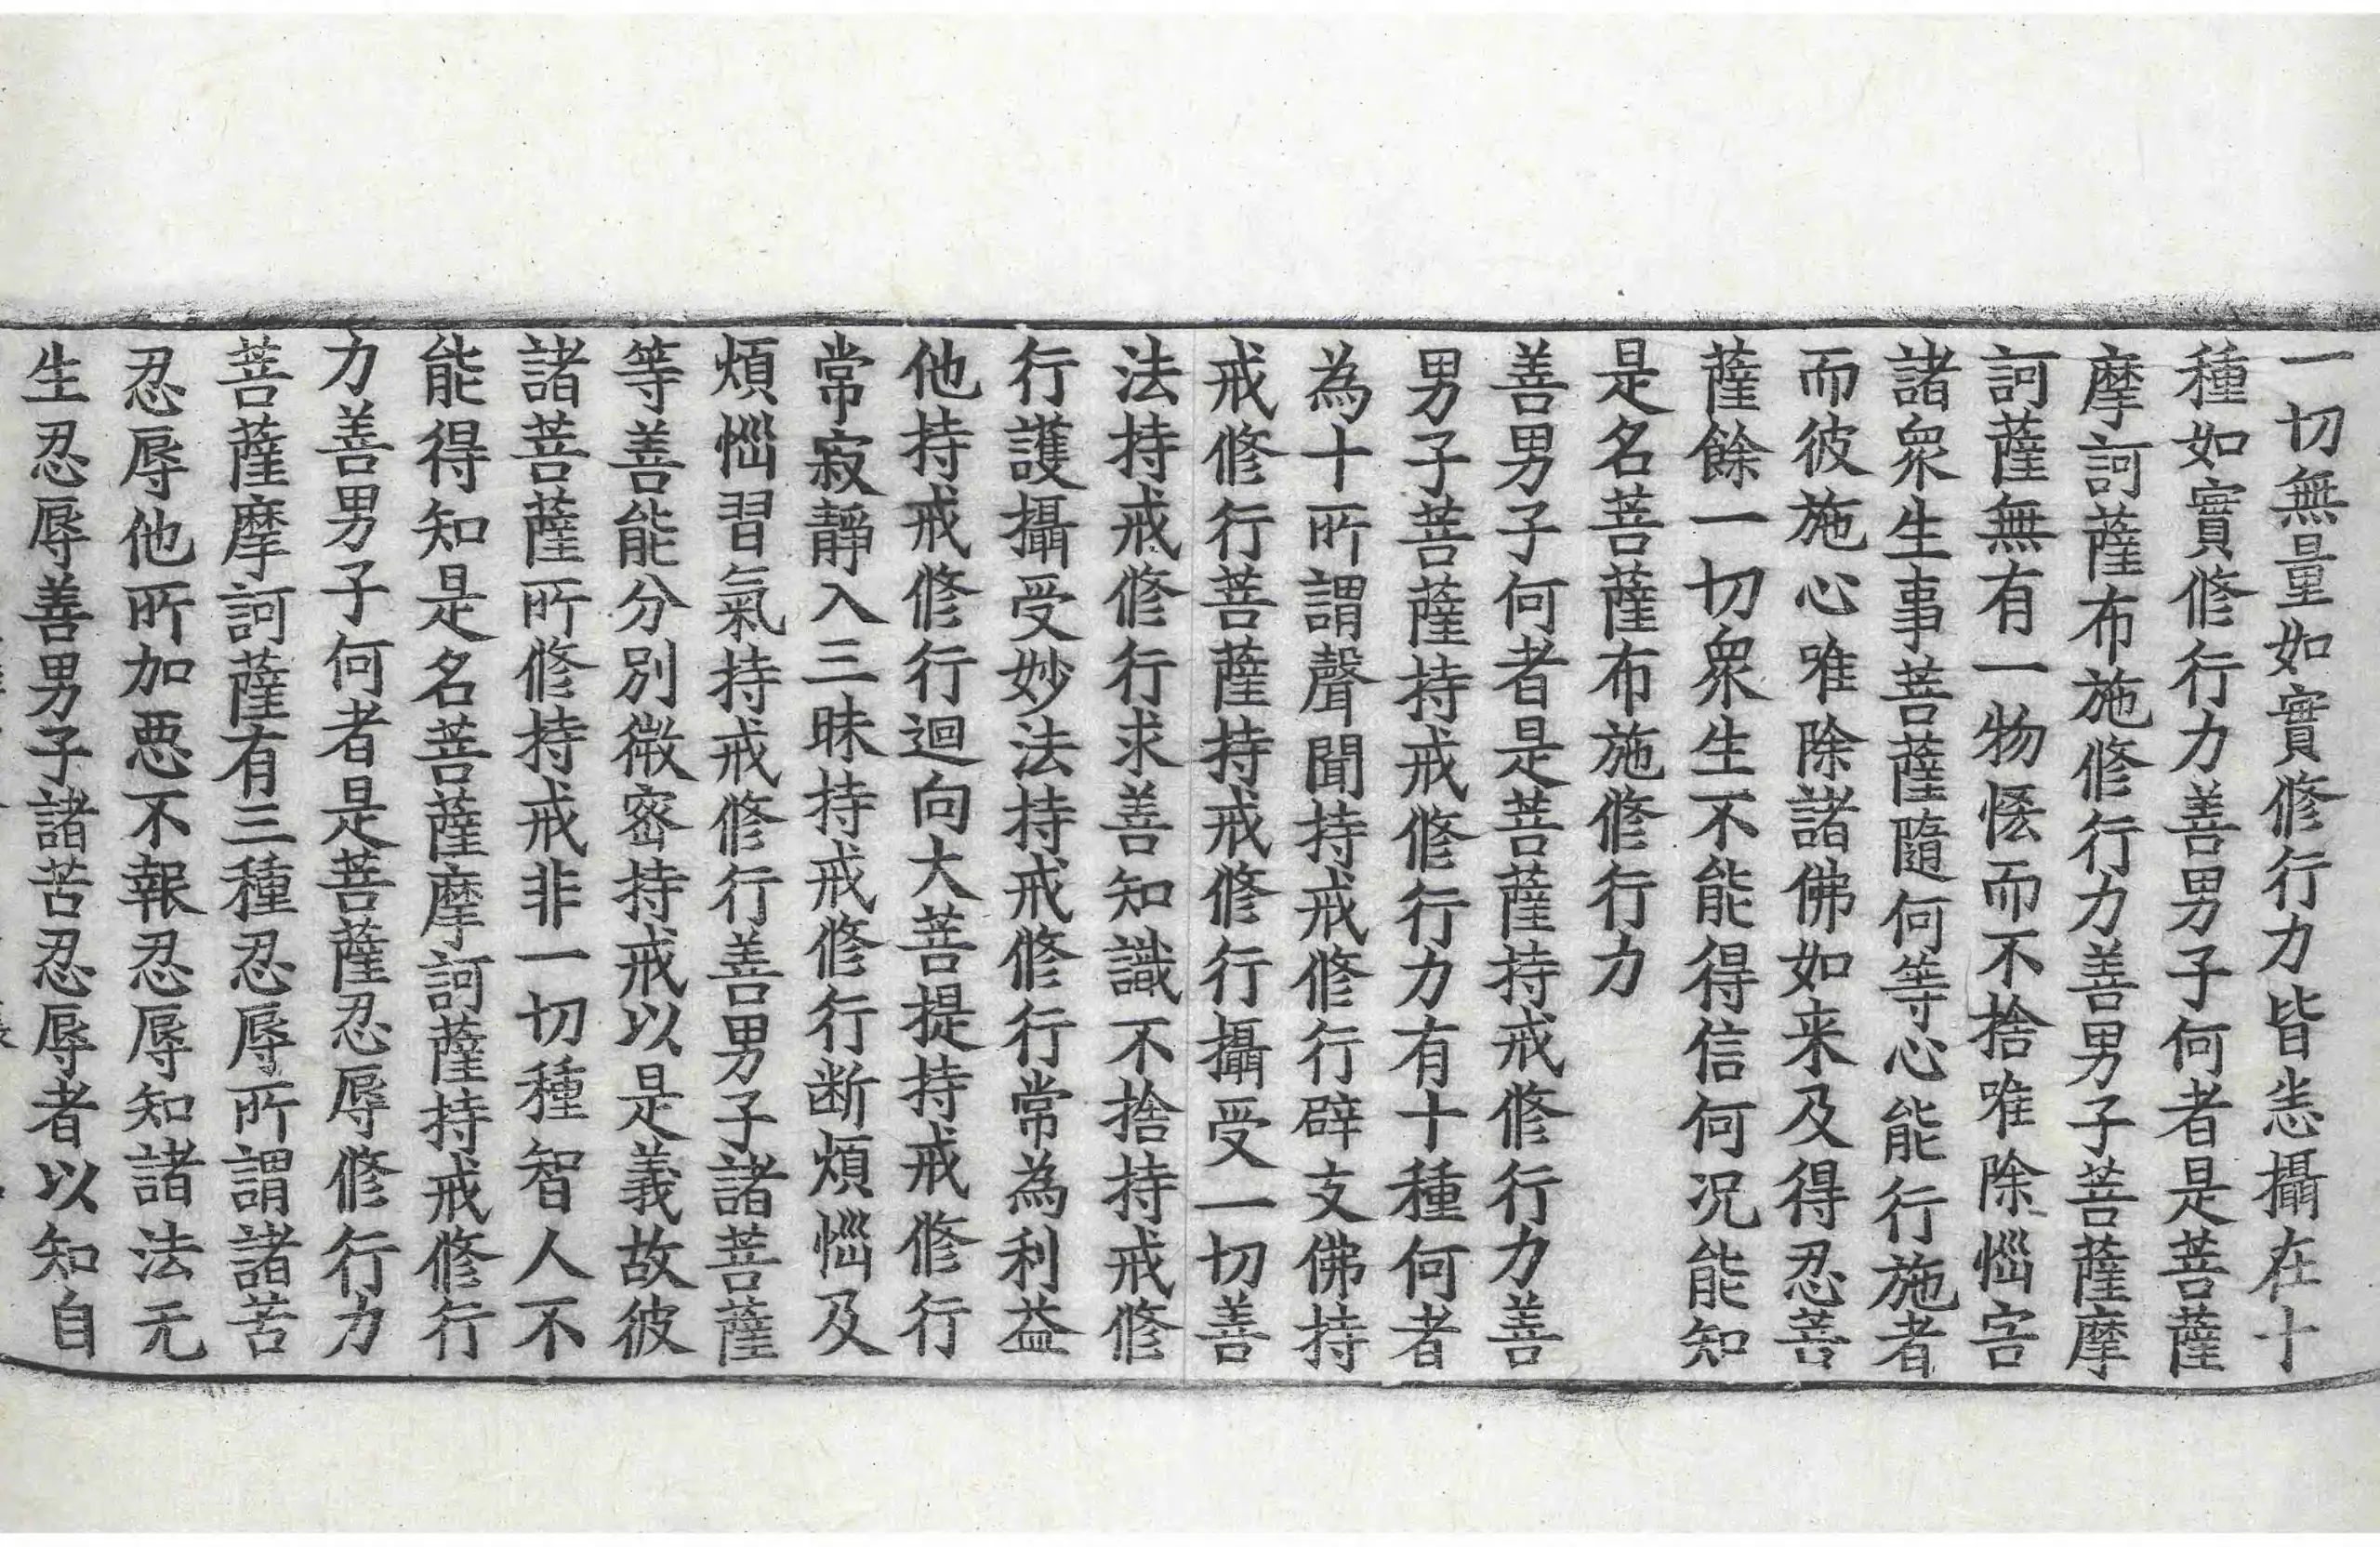 一切無量如實修行力皆悉攝在十
種如實修行力善男子何者是菩薩
摩訶薩布施修行力善男子菩薩摩
訶薩無有一物恡而不捨唯除惱害
諸衆生事菩薩隨何等心能行施者
而彼施心唯除諸佛如来及得忍菩
薩餘一切衆生不能得信何况能知
是名菩薩布施修行力
善男子何者是菩薩持戒修行力善
男子菩薩持戒修行力有十種何者
為十所謂聲聞持戒修行辟支佛持
戒修行菩薩持戒修行攝受一切善
法持戒修行求善知識不捨持戒修
行護攝受妙法持戒修行常為利益
他持戒修行迴向大菩提持戒修行
常寂靜入三昧持戒修行断煩惱及
煩惱習氣持戒修行善男子諸菩薩
等善能分別微密持戒以是義故彼
諸菩薩所修持戒非一切種智人不
能得知是名菩薩摩訶薩持戒修行
力善男子何者是菩薩忍辱修行力
菩薩摩訶薩有三種忍辱所謂諸苦
忍辱他所加悪不報忍辱知諸法无
生忍辱善男子諸苦忍辱者以知自